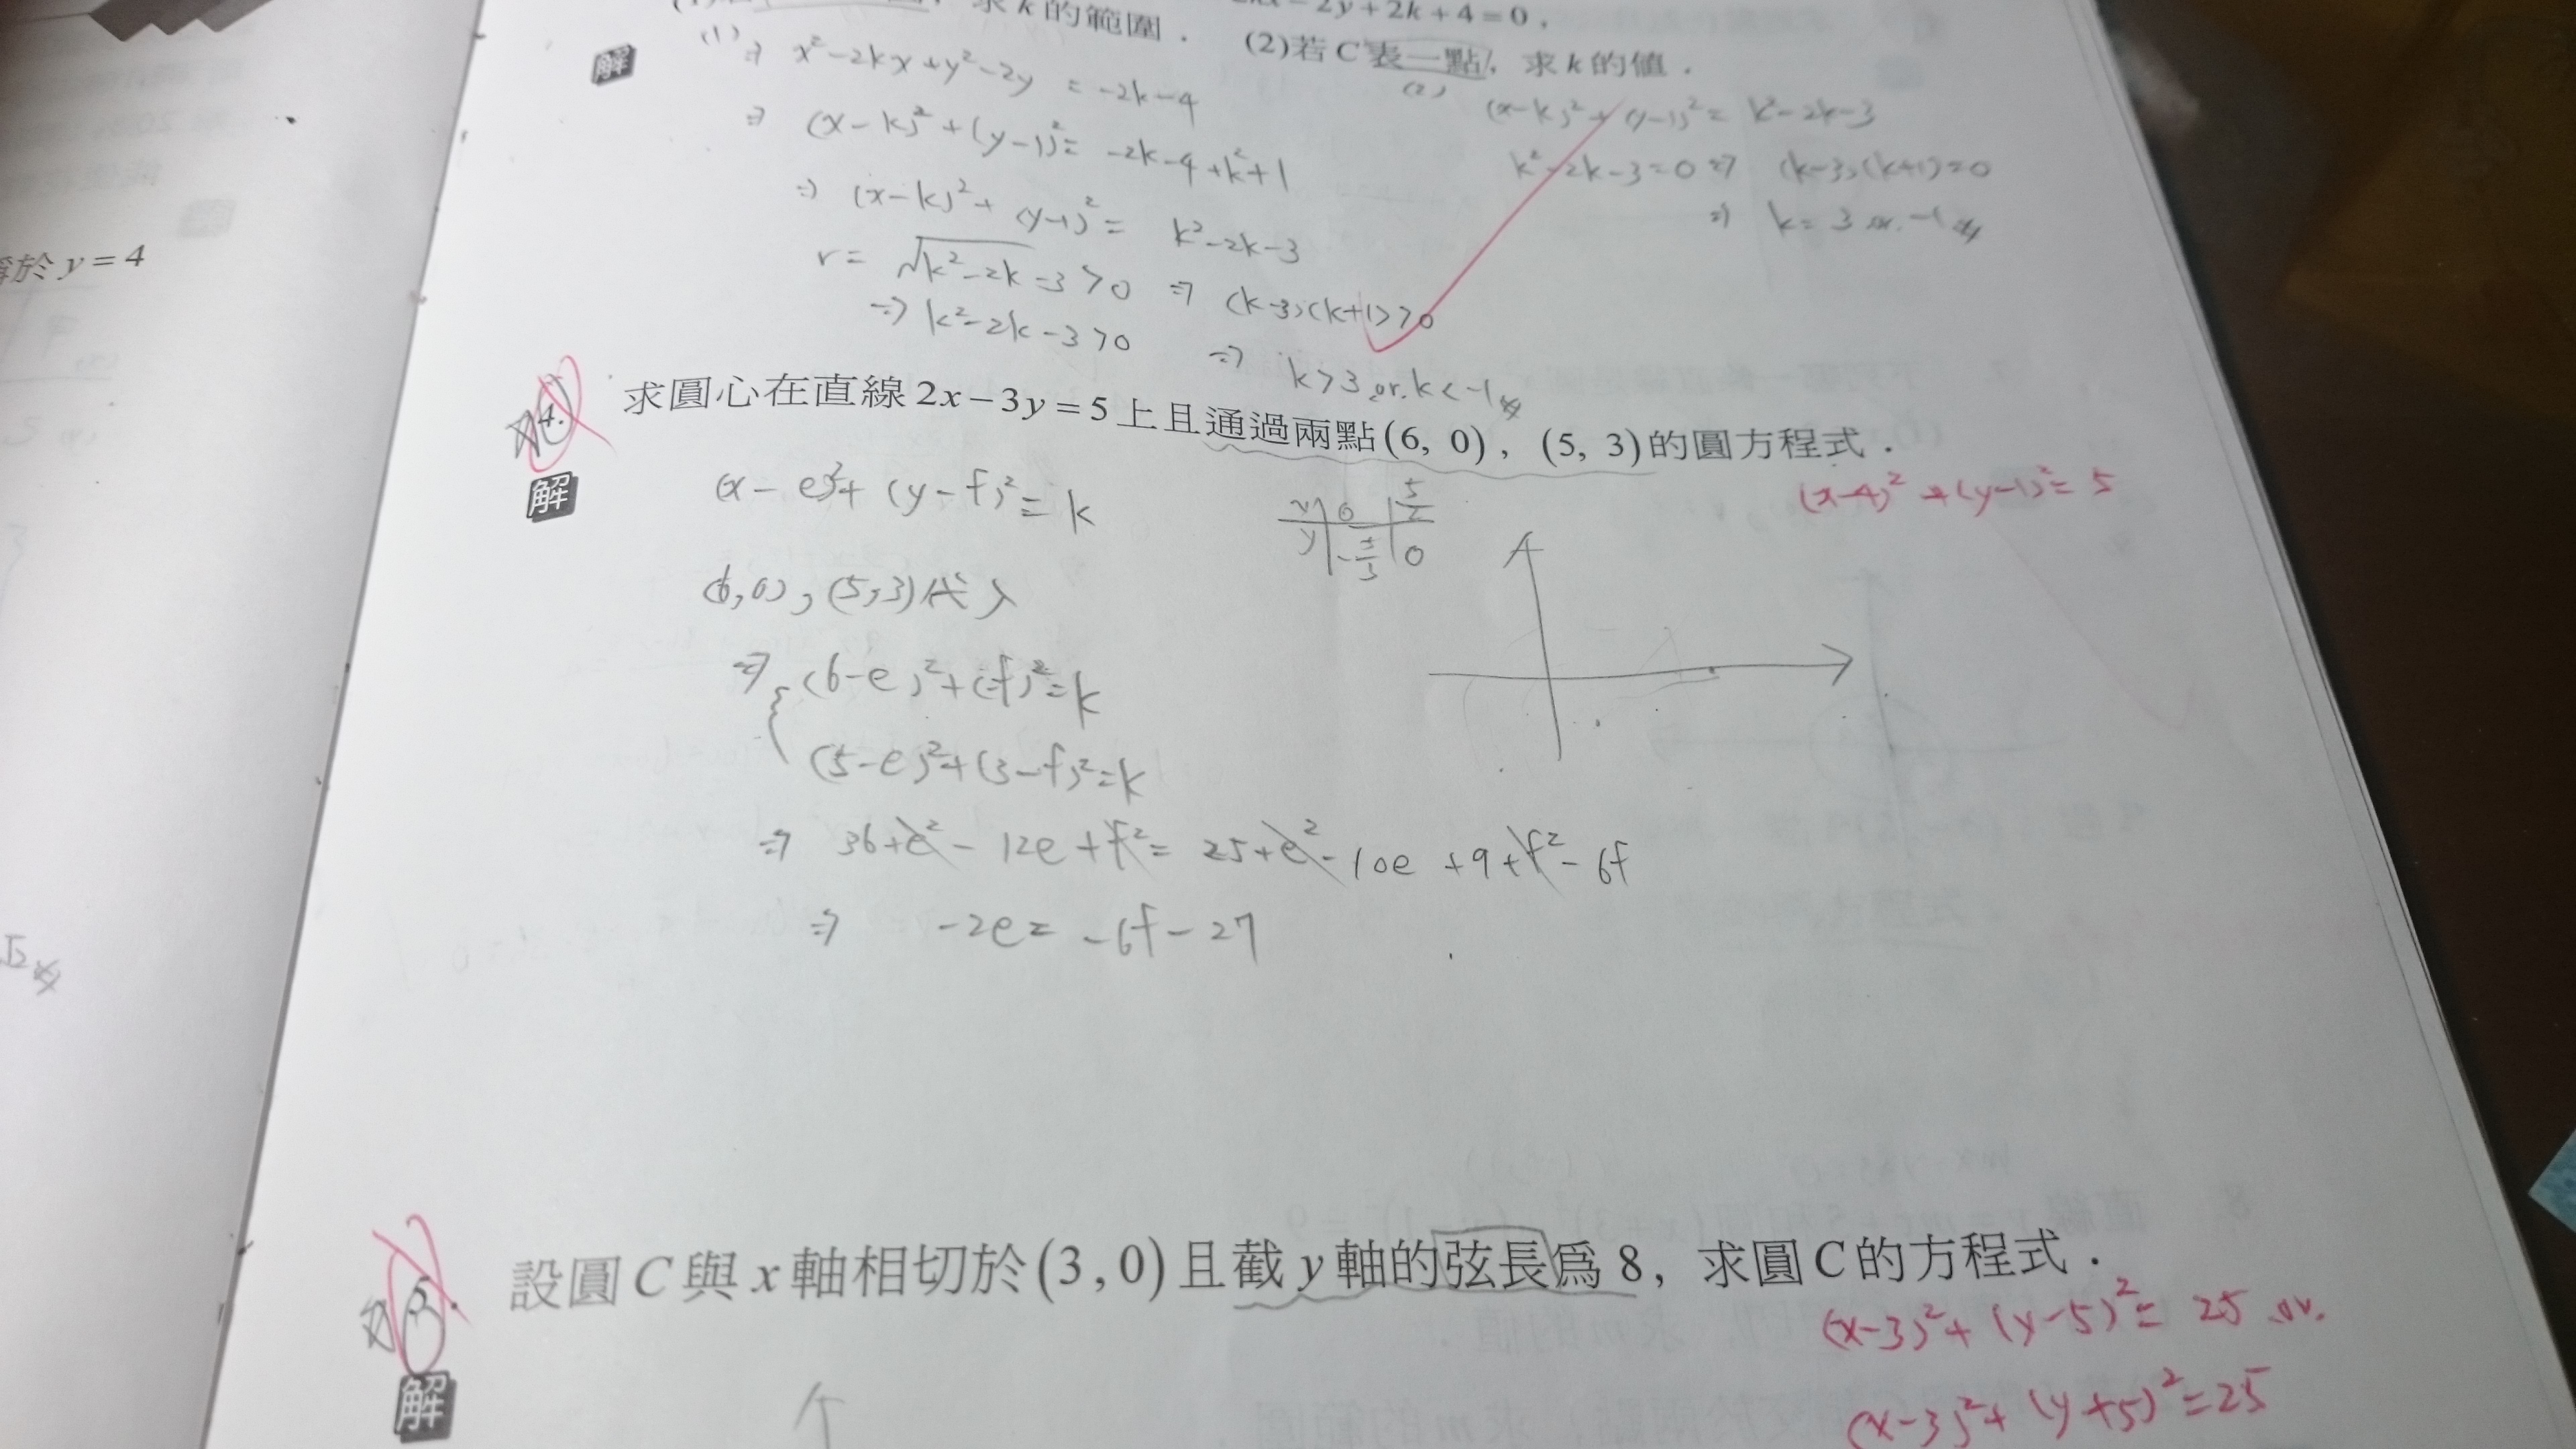 求k的範圍． -2y+2k+4=0，
(2)若C表一點，求k的值．
解
(1) ⇒ x²-2kx+y²-2y = -2k-4
⇒ (x-k)²+(y-1)²= -2k-4+k²+1
⇒ (x-k)²+(y-1)²= k²-2k-3
r= √k²-2k-3>0 ⇒ (k-3)(k+1)>0
⇒ k²-2k-3>0 ⇒ k>3 or. k<-1
(2) (x-k)²+(y-1)²= k²-2k-3
k²-2k-3=0 ⇒ (k-3)(k+1)=0
⇒ k= 3 or. -1
於 y=4
4. 求圓心在直線2x-3y=5上且通過兩點(6, 0)，(5, 3)的圓方程式．
(x-4)²+(y-1)²= 5
解
(x-e)²+(y-f)²= k
x 0 5/2
y -5/3 0
(6,0), (5,3)代入
⇒ { (6-e)²+(-f)²=k
(5-e)²+(3-f)²=k
⇒ 36+e²-12e+f²= 25+e²-10e+9+f²-6f
⇒ -2e= -6f-27
√2
5. 設圓C與x軸相切於(3,0)且截y軸的弦長為8，求圓C的方程式．
(x-3)²+(y-5)²= 25 or.
(x-3)²+(y+5)²=25
解